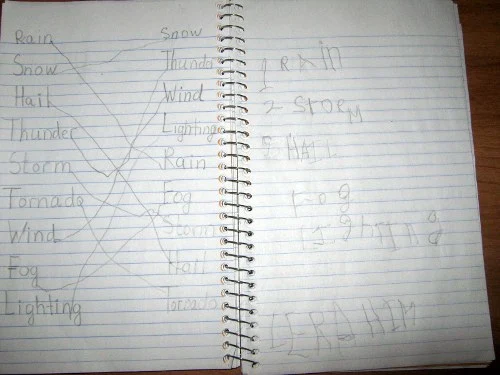 Rain
Snow
Hail
Thunder
Storm
Tornado
Wind
Fog
Lighting
Snow
Thunder
Wind
Lighting
Rain
Fog
Storm
Hail
Tornado
1 RAin
2 STORM
HAIL
Fog